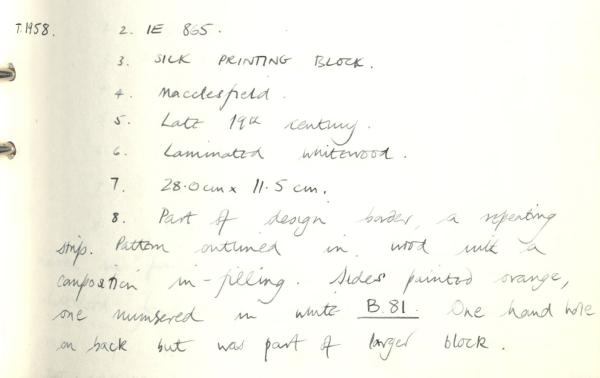 T.1958. 2. IE 865.
3. SILK PRINTING BLOCK.
4. Macclesfield.
5. Late 19th century.
6. Laminated whitewood.
7. 28.0cm x 11.5cm.
8. Part of design border, a repeating
strip. Pattern outlined in wood with a
composition in-filling. Sides painted orange,
one numbered in white B.81. One hand hole
on back but was part of larger block.